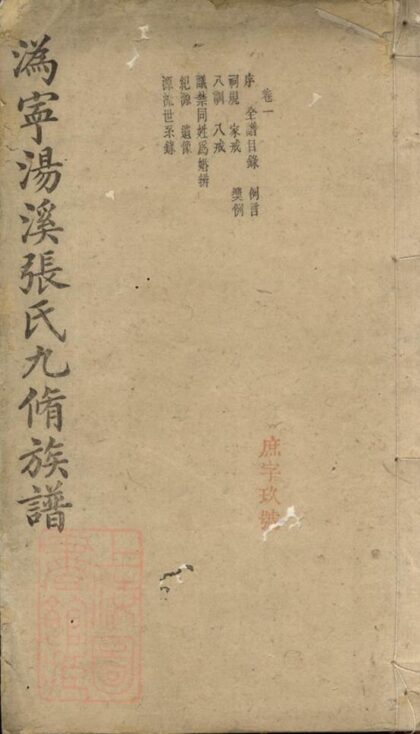 卷一
序 全譜目錄 例言
祠規 家戒 獎例
八訓 八戒
議禁同姓爲婚辨
紀源 遺像
源流世系錄
庶字玖號
溈寧湯溪張氏九脩族譜
上海圖
書館藏